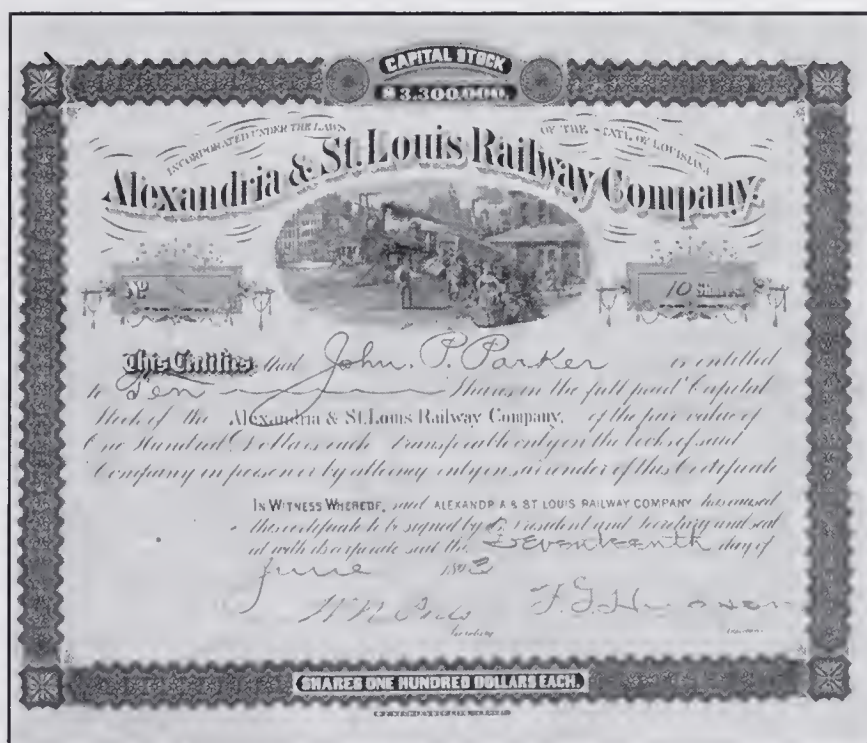 CAPITAL STOCK
$3,300,000.
INCORPORATED UNDER THE LAWS OF THE STATE OF LOUISIANA
Alexandria & St. Louis Railway Company.
No
10 Shares
This Certifies that John. P. Parker is entitled
to Ten Shares in the full paid Capital
Stock of the Alexandria & St. Louis Railway Company, of the par value of
One Hundred Dollars each transferable only on the books of said
Company in person or by attorney only on surrender of this Certificate
IN WITNESS WHEREOF, said ALEXANDRIA & ST LOUIS RAILWAY COMPANY has caused
this certificate to be signed by its President and Secretary and seal
ed with its corporate seal the Seventeenth day of
June
Secretary
SHARES ONE HUNDRED DOLLARS EACH.